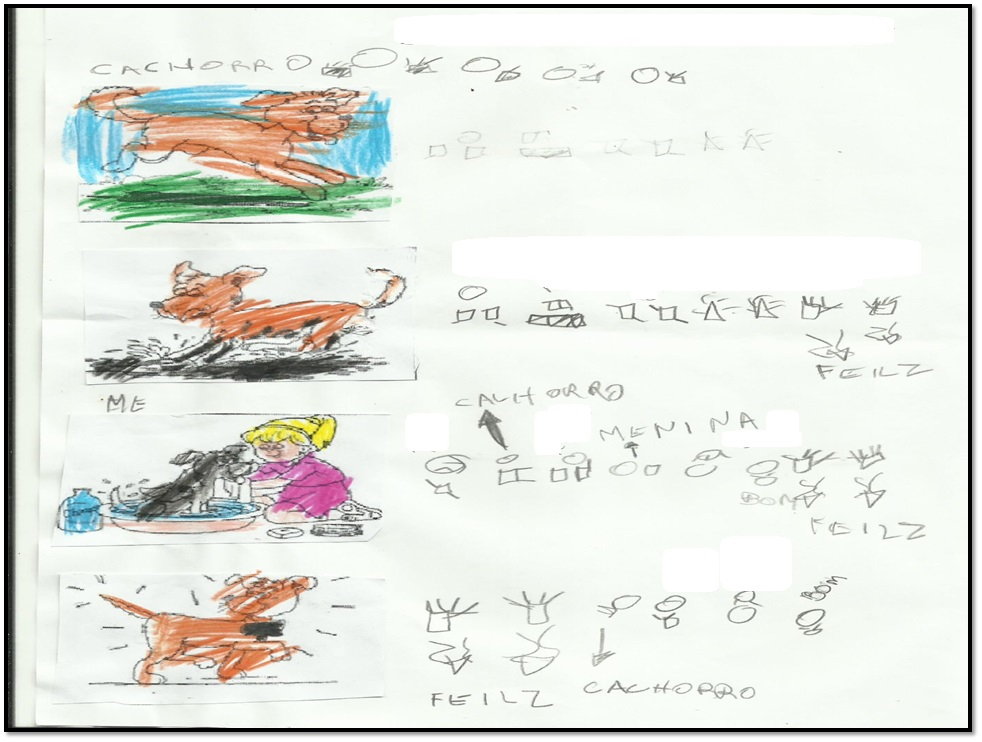 CACHORRO
FEILZ
ME
CACHORRO
MENINA
BOM
FEILZ
BOM
FEILZ
CACHORRO